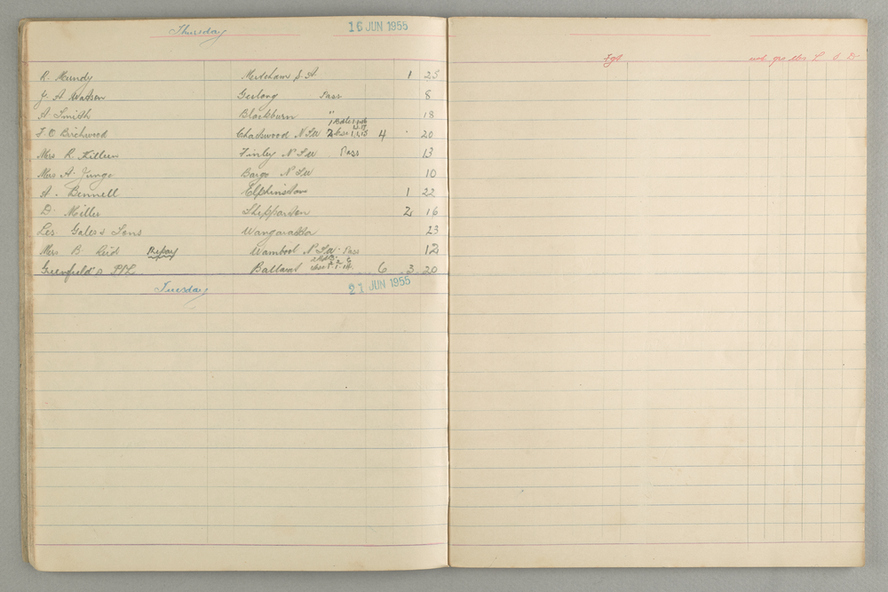 Thursday 16 JUN 1955
R. Mundy Mitcham S.A 1 25
Y. A. Watson Geelong Pass 8
A. Smith Blackburn " 18
Chatswood N.S.W 4 20
Mrs R. Finley N.S.W Pass 13
Mrs A. Junge Bargo N.S.W 10
A. Bennell Elphinstone 1 22
D. Miller Shepparton 2 16
Les. Gales & Sons Wangaratta 23
Mrs B. Reid Repay N.S.W. Pass 12
Greenfield's P/L Ballarat 6 3 20
Tuesday 21 JUN 1955
Fgt qrs lbs L S D